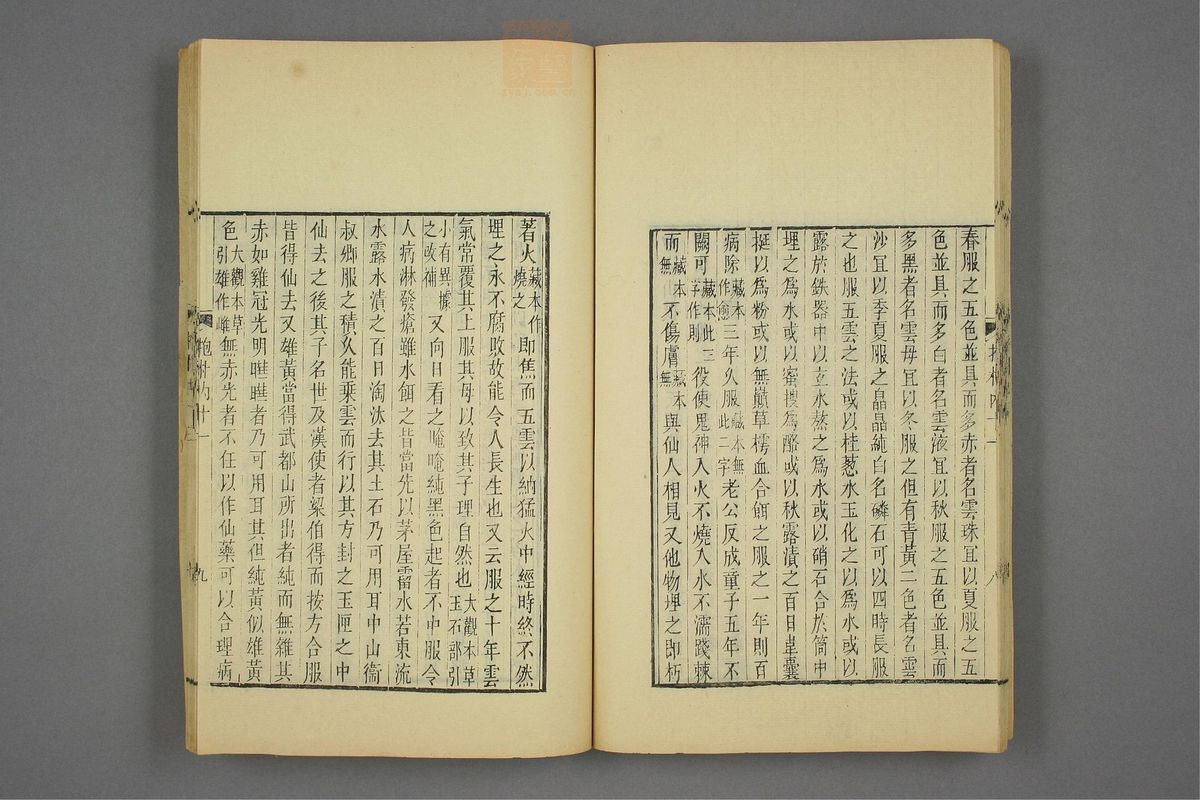 春服之五色並具而多赤者名雲珠宜以夏服之五
色並具而多白者名雲液宜以秋服之五色並具而
多黑者名雲母宜以冬服之但有青黃二色者名雲
沙宜以季夏服之晶晶純白名磷石可以四時長服
之也服五雲之法或以桂蔥水玉化之以爲水或以
露於鉄器中以立水熬之爲水或以硝石合於筒中
埋之爲水或以蜜搜爲酪或以秋露漬之百日韋囊
挻以爲粉或以無巔草樗血合餌之服之一年則百
病除藏本作愈三年久服藏本無此二字老公反成童子五年不
闕可藏本此三字作則役使鬼神入火不燒入水不濡踐棘
而藏本無不傷膚藏本無與仙人相見又他物埋之即朽
八
著火藏本作燒之即焦而五雲以納猛火中經時終不然
埋之永不腐敗故能令人長生也又云服之十年雲
氣常覆其上服其母以致其子理自然也大觀本草玉石部引
小有異據之改補又向日看之晻晻純黑色起者不中服令
人病淋發瘡雖水餌之皆當先以茅屋霤水若東流
水露水漬之百日淘汰去其土石乃可用耳中山衞
叔卿服之積久能乘雲而行以其方封之玉匣之中
仙去之後其子名世及漢使者梁伯得而按方合服
皆得仙去又雄黃當得武都山所出者純而無雜其
赤如雞冠光明曄曄者乃可用耳其但純黃似雄黃
色大觀本草引雄作雌無赤光者不任以作仙藥可以合理病
抱朴内十一
九